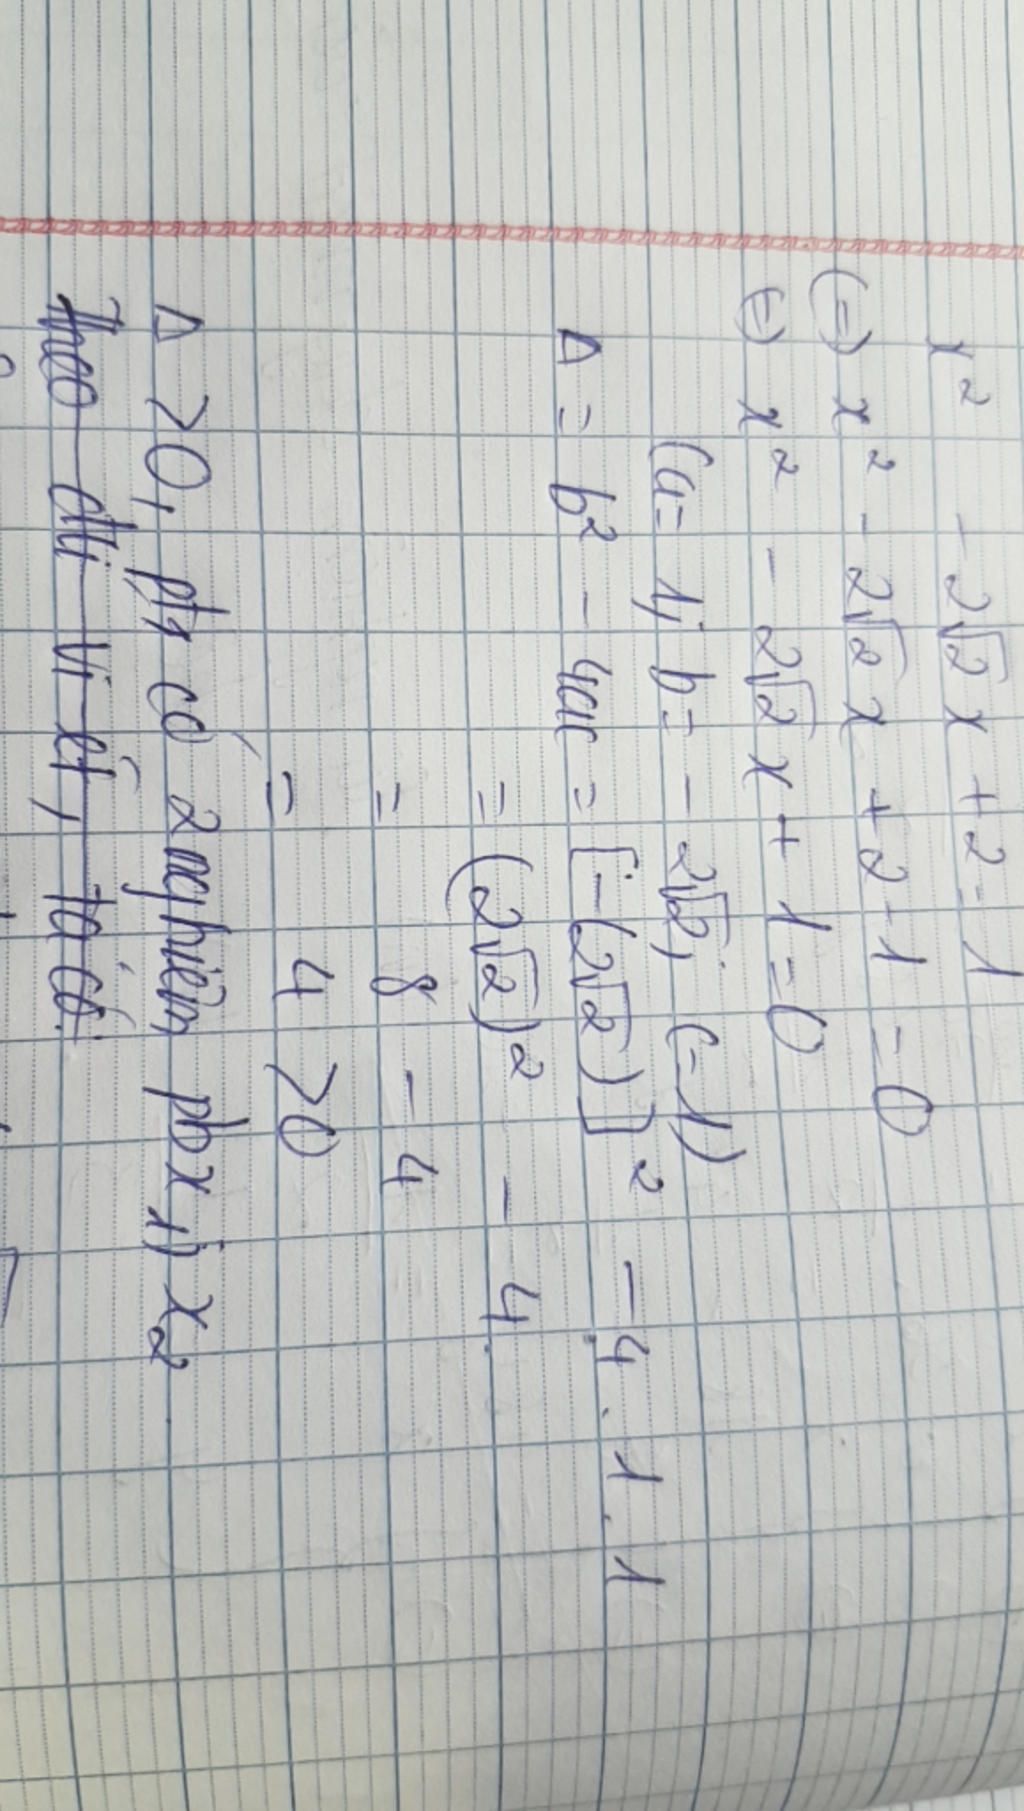 x² - 2√2 x + 2 = 1
(=) x² - 2√2 x + 2 - 1 = 0
(=) x² - 2√2 x + 1 = 0
(a = 1; b = - 2√2; c = 1)
Δ = b² - 4ac = [-(2√2)]² - 4 . 1 . 1
= (2√2)² - 4
= 8 - 4
= 4 > 0
Δ > 0, pt có 2 nghiệm pb x₁; x₂
theo đli Vi-ét, ta có: